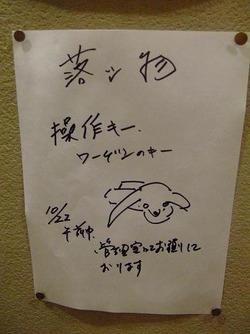 落ツ物
操作キー.
ワーゲンのキー
10/22
午前中、管理室にてお預りに
おります